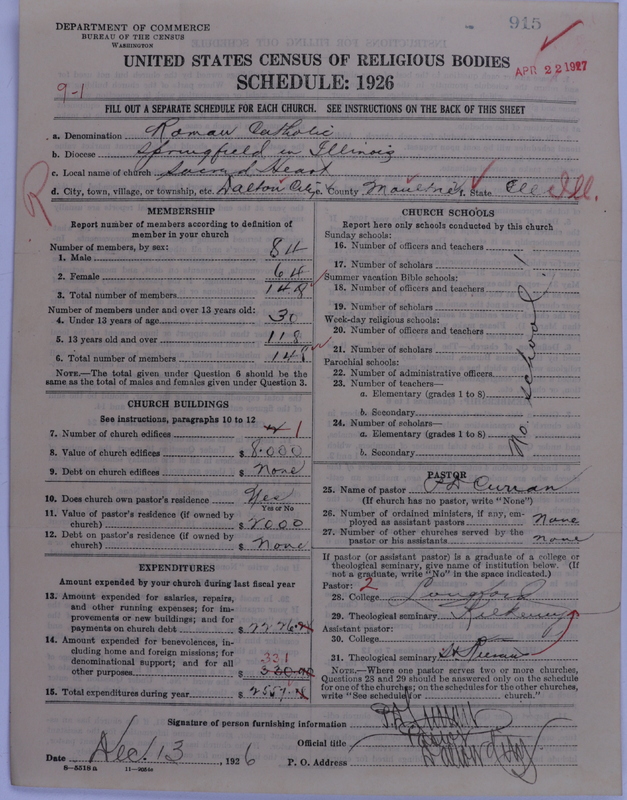 915
DEPARTMENT OF COMMERCE
BUREAU OF THE CENSUS
WASHINGTON
UNITED STATES CENSUS OF RELIGIOUS BODIES
APR 22 1927
SCHEDULE: 1926
9-1
FILL OUT A SEPARATE SCHEDULE FOR EACH CHURCH. SEE INSTRUCTIONS ON THE BACK OF THIS SHEET
a. Denomination Roman Catholic
b. Diocese Springfield in Illinois
c. Local name of church Sacred Heart
d. City, town, village, or township, etc. Dalton City e. County Moultrie f. State Ill.
R
MEMBERSHIP
Report number of members according to definition of
member in your church
Number of members, by sex:
1. Male 84
2. Female 64
3. Total number of members 148
Number of members under and over 13 years old:
4. Under 13 years of age 30
5. 13 years old and over 118
6. Total number of members 148
NOTE.—The total given under Question 6 should be the
same as the total of males and females given under Question 3.
CHURCH BUILDINGS
See instructions, paragraphs 10 to 12
7. Number of church edifices 1
8. Value of church edifices $ 8.000
9. Debt on church edifices $ None
10. Does church own pastor's residence Yes
Yes or No
11. Value of pastor's residence (if owned by
church) $ 2000
12. Debt on pastor's residence (if owned by
church) $ None
EXPENDITURES
Amount expended by your church during last fiscal year
13. Amount expended for salaries, repairs,
and other running expenses; for im-
provements or new buildings; and for
payments on church debt $ 2226
14. Amount expended for benevolences, in-
cluding home and foreign missions; for
denominational support; and for all
other purposes $ 331
15. Total expenditures during year $ 2557
CHURCH SCHOOLS
Report here only schools conducted by this church
Sunday schools:
16. Number of officers and teachers
17. Number of scholars
Summer vacation Bible schools:
18. Number of officers and teachers
19. Number of scholars
Week-day religious schools:
20. Number of officers and teachers
21. Number of scholars
Parochial schools:
22. Number of administrative officers
23. Number of teachers—
a. Elementary (grades 1 to 8)
b. Secondary
24. Number of scholars—
a. Elementary (grades 1 to 8)
b. Secondary
No. school!
PASTOR
25. Name of pastor Curran
(If church has no pastor, write "None")
26. Number of ordained ministers, if any, em-
ployed as assistant pastors None
27. Number of other churches served by the
pastor or his assistants none
If pastor (or assistant pastor) is a graduate of a college or
theological seminary, give name of institution below. (If
not a graduate, write "No" in the space indicated.)
Pastor: 2
28. College Longford
29. Theological seminary Kilkenny
Assistant pastor:
30. College
31. Theological seminary
NOTE.—Where one pastor serves two or more churches,
Questions 28 and 29 should be answered only on the schedule
for one of the churches; on the schedules for the other churches,
write "See schedule for church."
Signature of person furnishing information
Official title Pastor
Date Dec. 13, 1926 P. O. Address Dalton City
8—5518a 11—9056